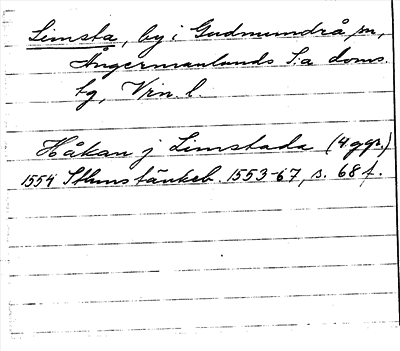 Limsta, by i Gudmundrå sn,
Ångermanlands S:a doms.
tg, Vrn. l.
Håkan j Limstada (4 ggr.)
1554 Sthms tänkeb. 1553-67, s. 68 f.